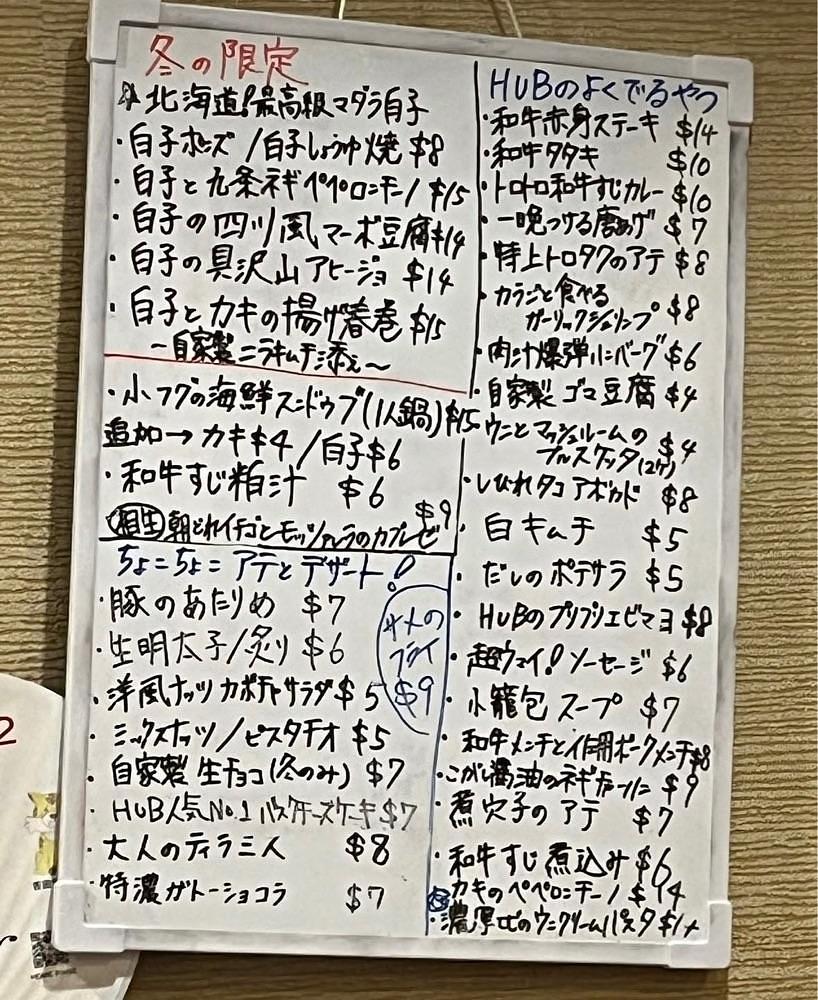 冬の限定
北海道!最高級マダラ白子
・白子ポン酢/白子しょうゆ焼 $8
・白子と九条ネギペペロンチーノ $15
・白子の四川風マーボ豆腐$14
・白子の具沢山アヒージョ $14
・白子とカキの揚げ春巻 $15
~自家製ニラキムチ添え~
・小フグの海鮮スンドゥブ(1人鍋) $15
追加→カキ$4/白子$6
・和牛すじ粕汁 $6
$9
相生 朝どれイチゴとモッツァレラのカプレーゼ
ちょこちょこアテとデザート!
・豚のあたりめ $7
・生明太子/炙り $6
・洋風ナッツカボチャサラダ $5
・ミックスナッツ/ピスタチオ $5
・自家製生チョコ(冬のみ) $7
・HUB人気No.1バスクチーズケーキ $7
・大人のティラミス $8
・特濃ガトーショコラ $7
サメの
フライ
$9
HUBのよくでるやつ
・和牛赤身ステーキ $14
・和牛タタキ $10
・トロトロ和牛すじカレー $10
・一晩つける唐あげ $7
・特上トロタクのアテ $8
・カラごと食べる
ガーリックシュリンプ $8
・肉汁爆弾ハンバーグ $6
・自家製ゴマ豆腐 $4
・ウニとマッシュルームの
ブルスケッタ(2ケ) $4
・しびれタコアボカド $8
・白キムチ $5
・だしのポテサラ $5
・HUBのプリプリエビマヨ $8
・超ウマイ!ソーセージ $6
・小籠包スープ $7
・和牛メンチと ポークメンチ$8
・こがし醤油のネギチャーハン $9
・煮穴子のアテ $7
・和牛すじ煮込み $6
・カキのペペロンチーノ $14
・濃厚 のウニクリームパスタ